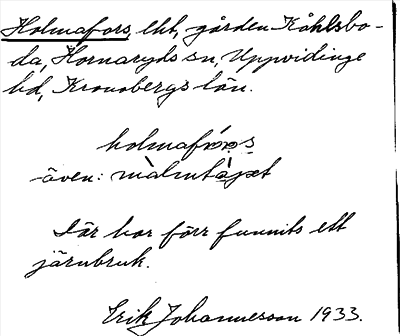 Holmafors, lht, gården Kåhlsbo-
da, Hornaryds sn, Uppvidinge
hd, Kronobergs län.
holmafrós
även: màlmtàjet
Där har förr funnits ett
järnbruk.
Erik Johannesson 1933.